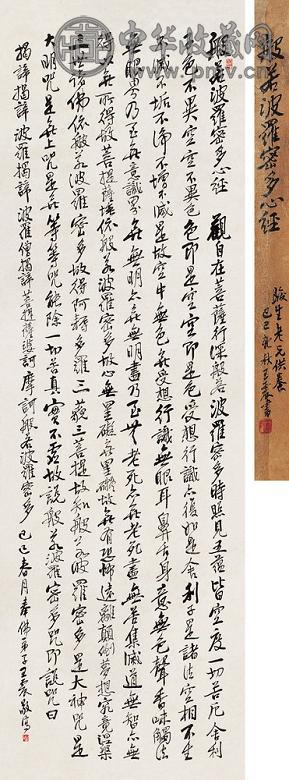 中华收藏网
般若波羅密多心經
己巳秋王震書
般若波羅密多心經 觀自在菩薩行深般若波羅密多時照見五蘊皆空度一切苦厄舍利
子色不異空空不異色色即是空空即是色受想行識亦復如是舍利子是諸法空相不生
不滅不垢不淨不增不減是故空中無色無受想行識無眼耳鼻舌身意無色聲香味觸法
無眼界乃至無意識界無無明亦無無明盡乃至無老死亦無老死盡無苦集滅道無智亦無
得以無所得故菩提薩埵依般若波羅密多故心無罣礙無罣礙故無有恐怖遠離顛倒夢想究竟涅槃
三世諸佛依般若波羅密多故得阿耨多羅三藐三菩提故知般若波羅密多是大神咒是
大明咒是無上咒是無等等咒能除一切苦真實不虛故說般若波羅密多咒即說咒曰
揭諦揭諦 波羅揭諦 波羅僧揭諦 菩提薩婆訶 摩訶般若波羅密多 己巳春月奉佛弟子王震敬寫